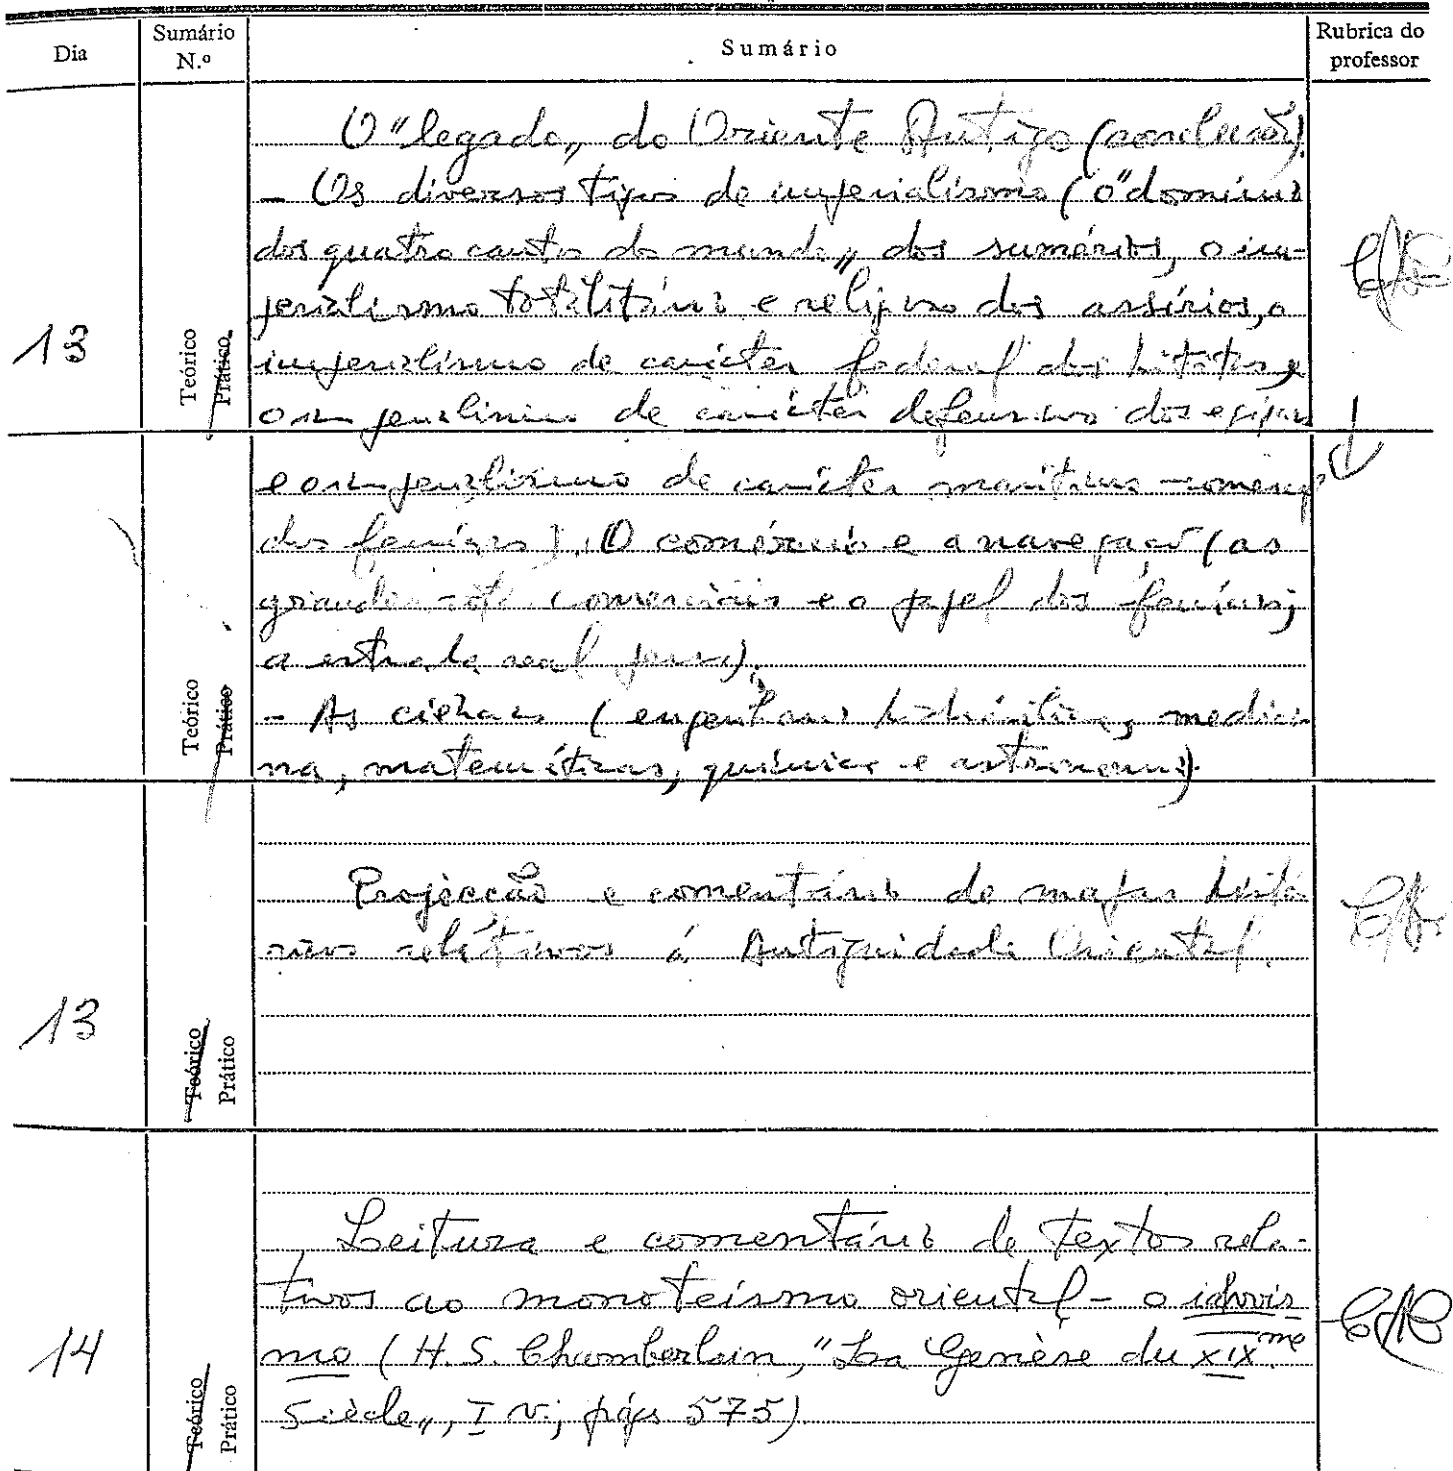 Dia
Sumário
N.º
Sumário
Rubrica do
professor
O "legado„ do Oriente Antigo (conclusão).
- Os diversos tipos de imperialismo (o "domínio
dos quatro cantos do mundo„ dos sumérios, o im-
perialismo totalitário e religioso dos assírios, o
imperialismo de carácter federal dos hititas, e
o imperialismo de carácter defensivo dos egípcios
13
Teórico
Prático
e o imperialismo de carácter marítimo-comerç
dos fenícios). O comércio e a navegação (as
grandes rotas comerciais e o papel dos fenícios;
a estrada real persa).
- As ciências (engenharia hidráulica, medici
na, matemáticas, química e astronomia).
Teórico
Prático
Projecção e comentário de mapas histó
ricos relativos á Antiguidade Oriental.
13
Teórico
Prático
Leitura e comentário de textos rela-
tivos ao monoteísmo oriental - o iahvis
mo (H. S. Chamberlain, "La Genèse du XIX.me
Siècle„, I v.; págs 575).
14
Teórico
Prático